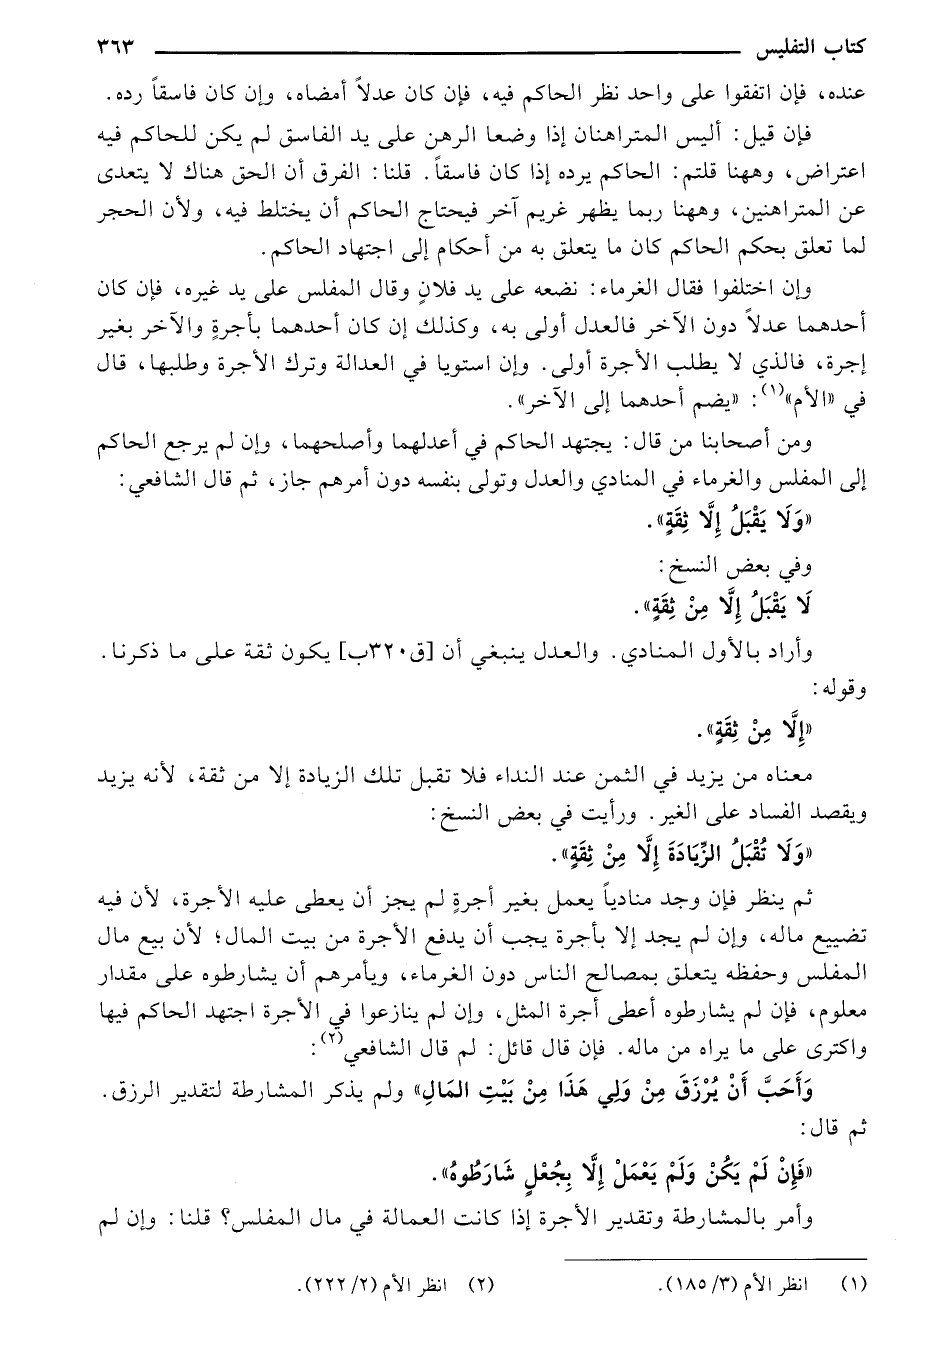 كتاب التفليس ٣٦٣
عنده، فإن اتفقوا على واحد نظر الحاكم فيه، فإن كان عدلاً أمضاه، وإن كان فاسقاً رده.
فإن قيل: أليس المتراهنان إذا وضعا الرهن على يد الفاسق لم يكن للحاكم فيه
اعتراض، وههنا قلتم: الحاكم يرده إذا كان فاسقاً. قلنا: الفرق أن الحق هناك لا يتعدى
عن المتراهنين، وههنا ربما يظهر غريم آخر فيحتاج الحاكم أن يختلط فيه، ولأن الحجر
لما تعلق بحكم الحاكم كان ما يتعلق به من أحكام إلى اجتهاد الحاكم.
وإن اختلفوا فقال الغرماء: نضعه على يد فلانٍ وقال المفلس على يد غيره، فإن كان
أحدهما عدلاً دون الآخر فالعدل أولى به، وكذلك إن كان أحدهما بأجرةٍ والآخر بغير
إجرة، فالذي لا يطلب الأجرة أولى. وإن استويا في العدالة وترك الأجرة وطلبها، قال
في «الأم»(١): «يضم أحدهما إلى الآخر».
ومن أصحابنا من قال: يجتهد الحاكم في أعدلهما وأصلحهما، وإن لم يرجع الحاكم
إلى المفلس والغرماء في المنادي والعدل وتولى بنفسه دون أمرهم جاز، ثم قال الشافعي:
«وَلَا يَقْبَلُ إِلَّا ثِقَةٍ».
وفي بعض النسخ:
لَا يَقْبَلُ إِلَّا مِنْ ثِقَةٍ».
وأراد بالأول المنادي. والعدل ينبغي أن [ق٣٢٠ب] يكون ثقة على ما ذكرنا.
وقوله:
«إِلَّا مِنْ ثِقَةٍ».
معناه من يزيد في الثمن عند النداء فلا تقبل تلك الزيادة إلا من ثقة، لأنه يزيد
ويقصد الفساد على الغير. ورأيت في بعض النسخ:
«وَلَا تُقْبَلُ الزِّيَادَةَ إِلَّا مِنْ ثِقَةٍ».
ثم ينظر فإن وجد منادياً يعمل بغير أجرةٍ لم يجز أن يعطى عليه الأجرة، لأن فيه
تضييع ماله، وإن لم يجد إلا بأجرة يجب أن يدفع الأجرة من بيت المال؛ لأن بيع مال
المفلس وحفظه يتعلق بمصالح الناس دون الغرماء، ويأمرهم أن يشارطوه على مقدار
معلوم، فإن لم يشارطوه أعطى أجرة المثل، وإن لم ينازعوا في الأجرة اجتهد الحاكم فيها
واكترى على ما يراه من ماله. فإن قال قائل: لم قال الشافعي(٢):
وَأَحَبَّ أَنْ يُرْزَقَ مِنْ وَلِي هَذَا مِنْ بَيْتِ المَالِ» ولم يذكر المشارطة لتقدير الرزق.
ثم قال:
«فَإِنْ لَمْ يَكُنْ وَلَمْ يَعْمَلْ إِلَّا بِجُعْلٍ شَارَطُوهُ».
وأمر بالمشارطة وتقدير الأجرة إذا كانت العمالة في مال المفلس؟ قلنا: وإن لم
(١) انظر الأم (٣/ ١٨٥). (٢) انظر الأم (٢/ ٢٢٢).